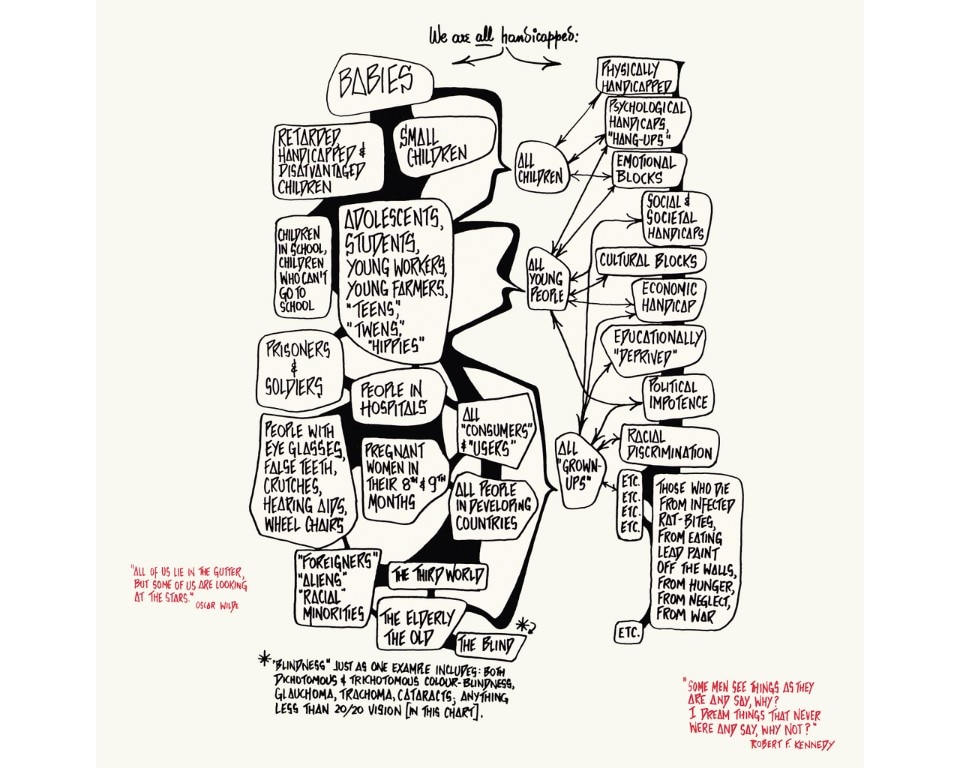 We are all handicapped:
BABIES
RETARDED,
HANDICAPPED &
DISATVANTAGED
CHILDREN
SMALL
CHILDREN
CHILDREN
IN SCHOOL,
CHILDREN
WHO CAN'T
GO TO
SCHOOL
ADOLESCENTS,
STUDENTS,
YOUNG WORKERS,
YOUNG FARMERS,
"TEENS,"
"TWENS,"
"HIPPIES"
PRISONERS
&
SOLDIERS
PEOPLE IN
HOSPITALS
PEOPLE WITH
EYE GLASSES,
FALSE TEETH,
CRUTCHES,
HEARING AIDS,
WHEEL CHAIRS
PREGNANT
WOMEN IN
THEIR 8TH & 9TH
MONTHS
ALL
"CONSUMERS"
& "USERS"
ALL PEOPLE
IN DEVELOPING
COUNTRIES
"FOREIGNERS"
"ALIENS"
"RACIAL"
MINORITIES
THE THIRD WORLD
THE ELDERLY
THE OLD
THE BLIND
*?
ALL
CHILDREN
ALL
YOUNG
PEOPLE
ALL
"GROWN-
UPS"
PHYSICALLY
HANDICAPPED
PSYCHOLOGICAL
HANDICAPS,
"HANG-UPS"
EMOTIONAL
BLOCKS
SOCIAL &
SOCIETAL
HANDICAPS
CULTURAL BLOCKS
ECONOMIC
HANDICAP
EDUCATIONALLY
"DEPRIVED"
POLITICAL
IMPOTENCE
RACIAL
DISCRIMINATION
ETC.
ETC.
ETC.
ETC.
THOSE WHO DIE
FROM INFECTED
RAT-BITES,
FROM EATING
LEAD PAINT
OFF THE WALLS,
FROM HUNGER,
FROM NEGLECT,
FROM WAR
ETC.
"ALL OF US LIE IN THE GUTTER,
BUT SOME OF US ARE LOOKING
AT THE STARS."
OSCAR WILDE
* "BLINDNESS" JUST AS ONE EXAMPLE INCLUDES: BOTH
DICHOTOMOUS & TRICHOTOMOUS COLOUR-BLINDNESS,
GLAUCHOMA, TRACHOMA, CATARACTS; ANYTHING
LESS THAN 20/20 VISION [IN THIS CHART].
"SOME MEN SEE THINGS AS THEY
ARE AND SAY, WHY?
I DREAM THINGS THAT NEVER
WERE AND SAY, WHY NOT?"
ROBERT F. KENNEDY